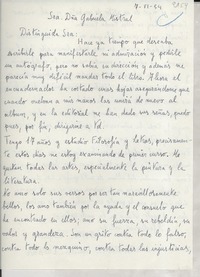 Sra. Dña Gabriela Mistral
Distinguida Sra:
Hace ya tiempo que deseaba
escribirle para manifestarle mi admiración y pedirle
un autógrafo, pero no sabía su dirección y además me
parecía muy difícil mandar todo el libro. Ahora el
encuadernador ha cortado unas hojas asegurándome que
cuando vuelvan a mis manos las unirá de nuevo al
album, y en la editorial me han dado sus señas, puedo
pues, por fin, dirigirme a Vd.
Tengo 17 años y estudio Filosofía y Letras, precisamente
estos días me estoy examinando de primer curso. Me
gustan todas las artes, especialmente la pintura y la
literatura.
Yo amo sólo sus versos por ser tan maravillosamente
bellos, los amo también por la ayuda y el consuelo que
he encontrado en ellos; amo su fuerza, su rebeldía, su
valor y grandeza. Son un grito contra todo lo falso,
contra todo lo mezquino, contra todas las injusticias,